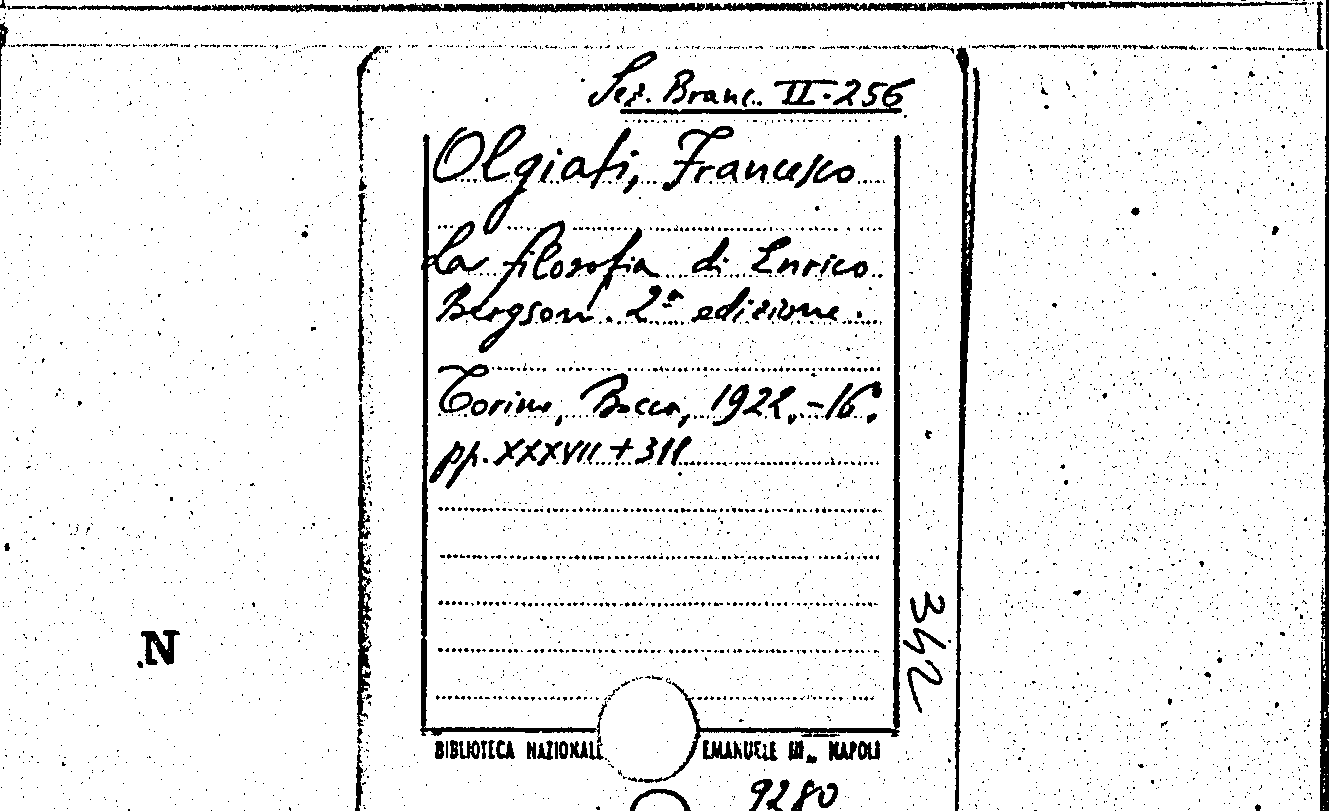 Sez. Branc. II. 256
Olgiati, Francesco
La filosofia di Enrico
Bergson. 2ª edizione.
Torino, Bocca, 1922.-16°.
pp. XXXVII + 311
342
N
BIBLIOTECA NAZIONALE EMANUELE III„ NAPOLI
9280